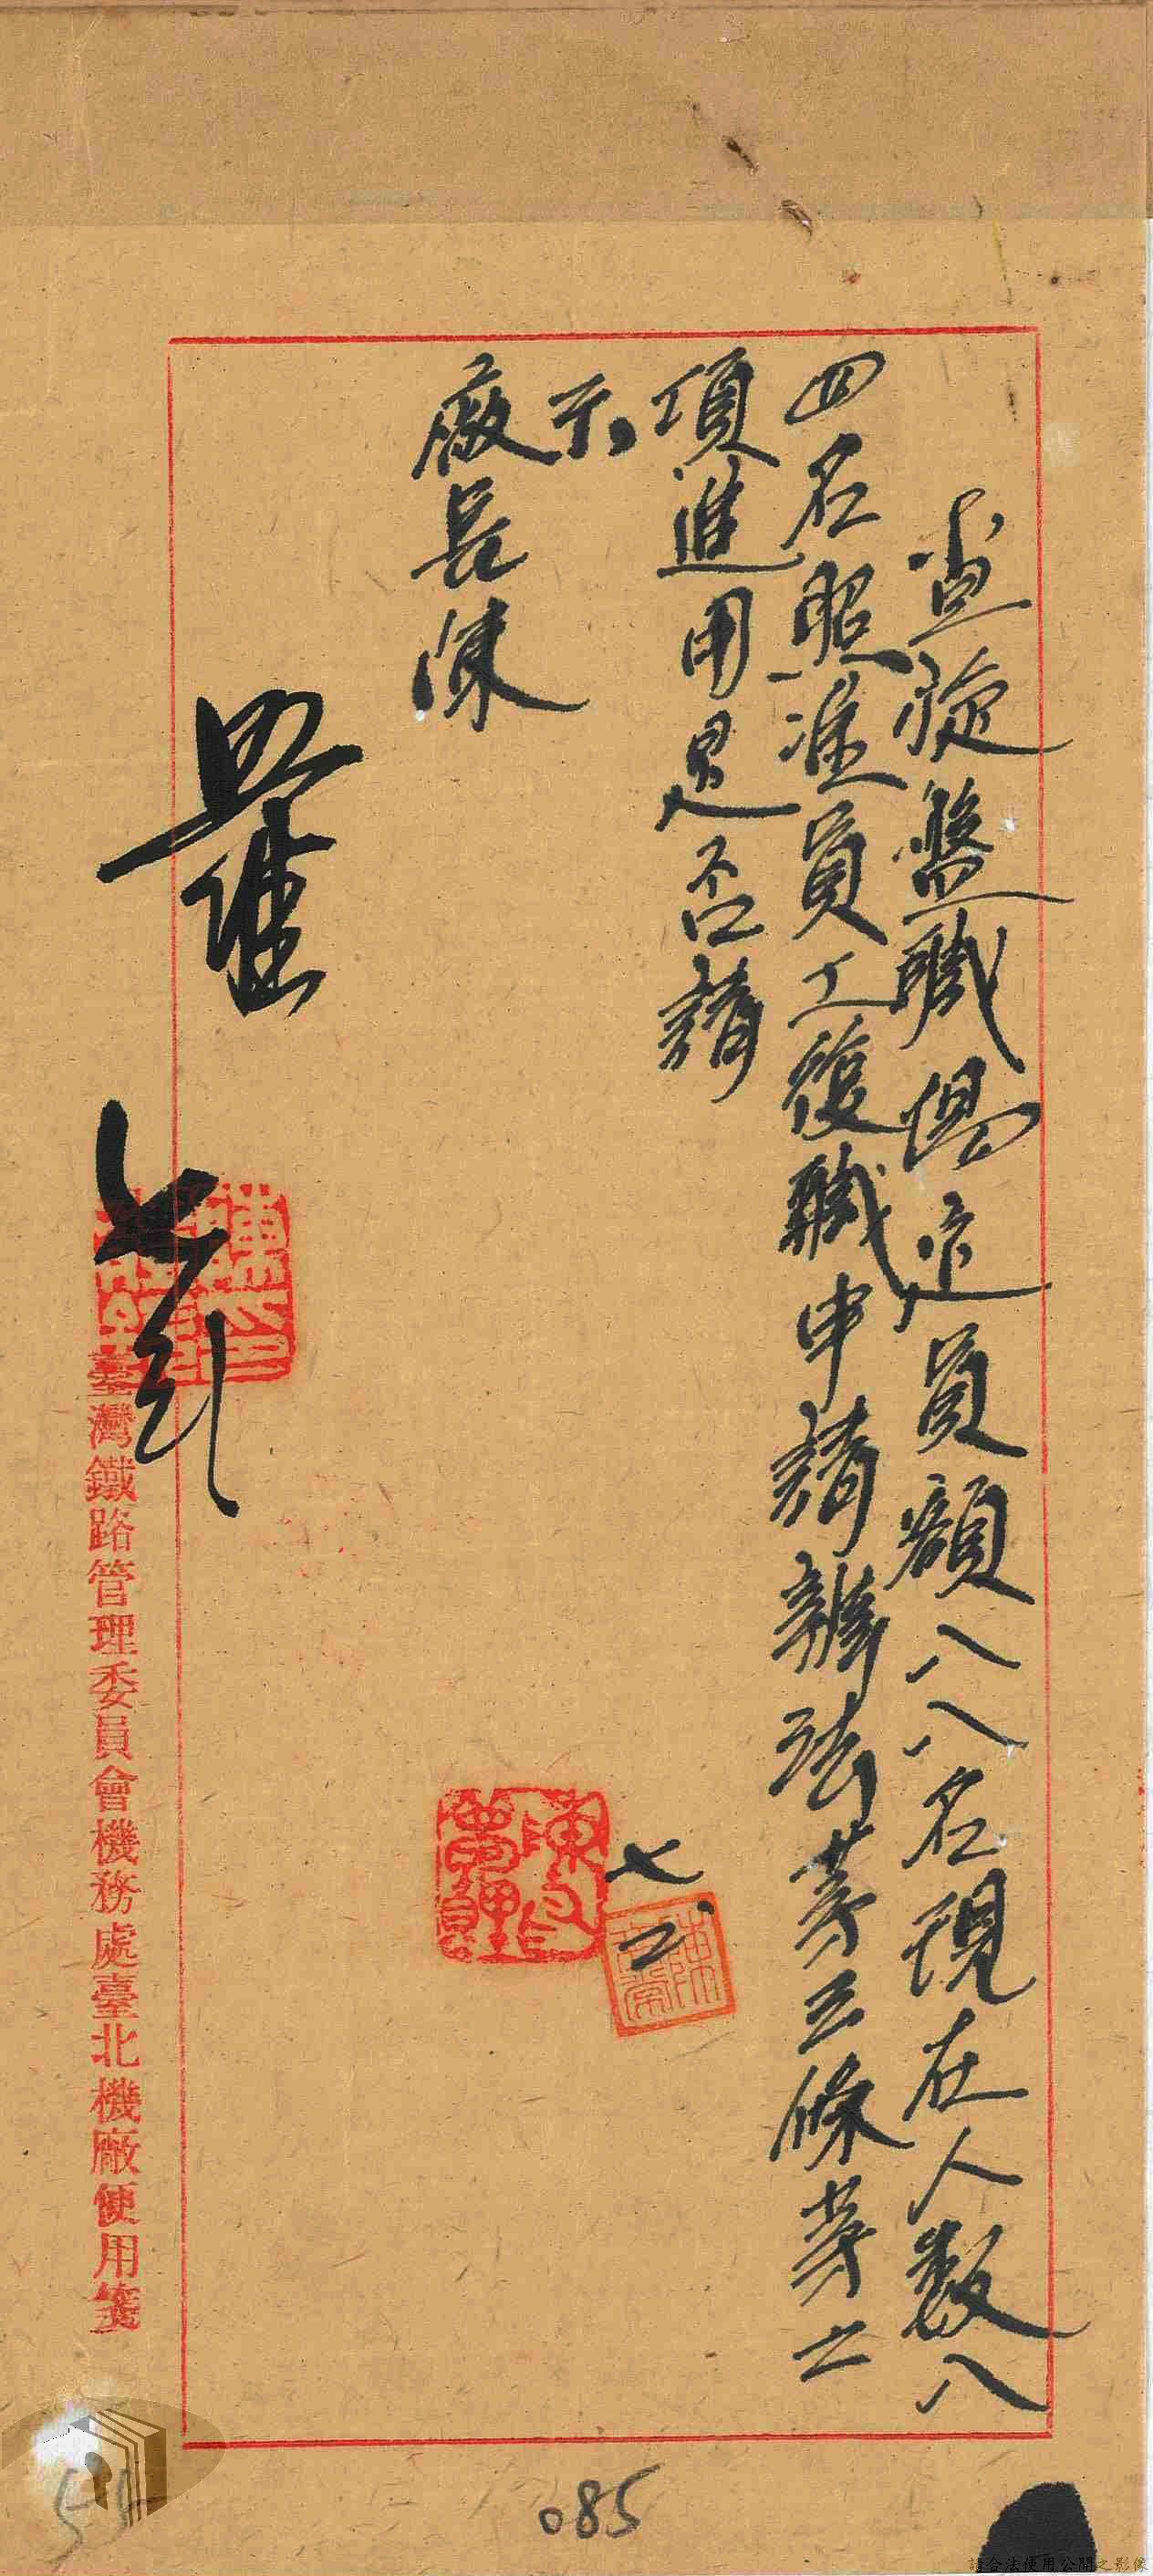 查旋盤職場定員額八八名現在人數八
四名照准員工復職申請辦法第三條第二
項進用是否請
示
廠長陳
七、二
照准
七、引
臺灣鐵路管理委員會機務處臺北機廠便用箋
085
請合法使用公開之影像